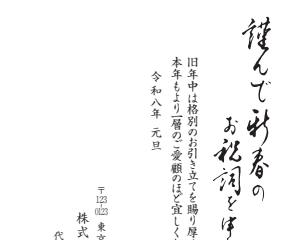 謹んで新春の
お祝詞を申
旧年中は格別のお引き立てを賜り厚
本年もより一層のご愛顧のほど宜しく
令和八年 元旦
〒123-0123 東京
株式
代